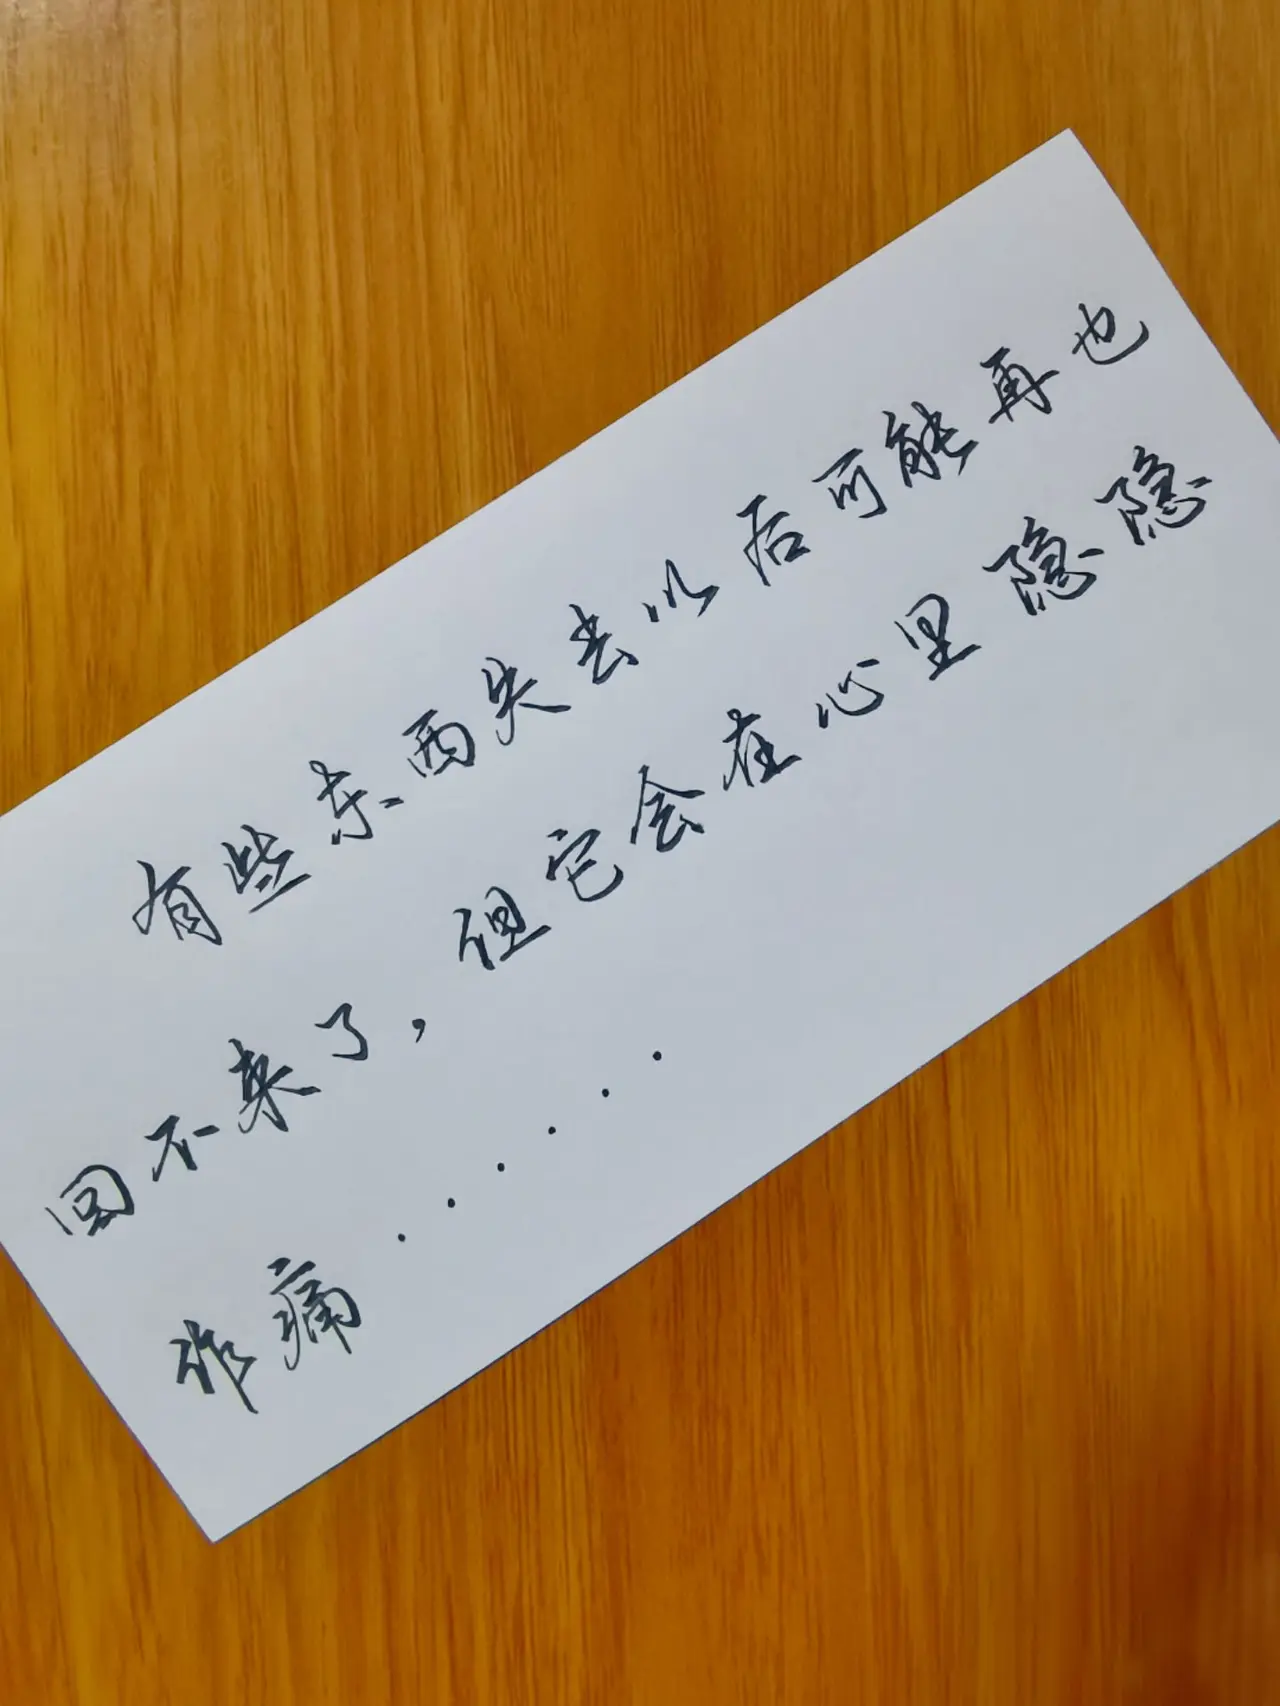 有些东西失去以后可能再也
回不来了，但它会在心里隐隐
作痛......